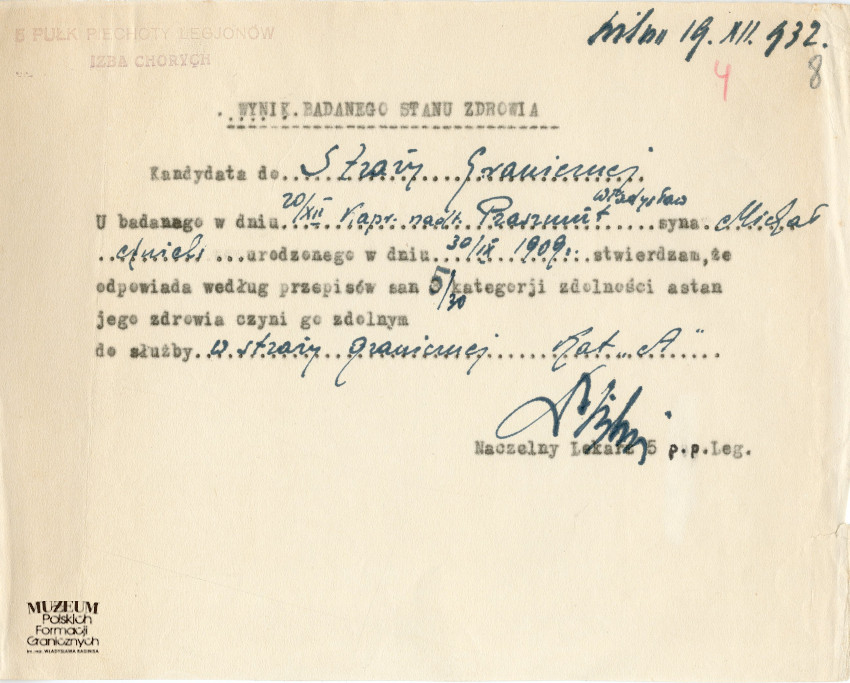 5 PUŁK PIECHOTY LEGJONÓW
IZBA CHORYCH
19. XII. 932.
4
8
WYNIK BADANEGO STANU ZDROWIA
Kandydata do Straży Granicznej
U badanego w dniu 20/XII Kapr. nadt. Praszmut Władysław syna Michał
urodzonego w dniu 30/IX 1909. stwierdzam, że
odpowiada według przepisów san 5/30 kategorji zdolności astan
jego zdrowia czyni go zdolnym
do służby w straży granicznej Kat „A"
Naczelny Lekarz 5 p.p.Leg.
MUZEUM
Polskich
Formacji
Granicznych
im. mjr. WŁADYSŁAWA RAGINISA